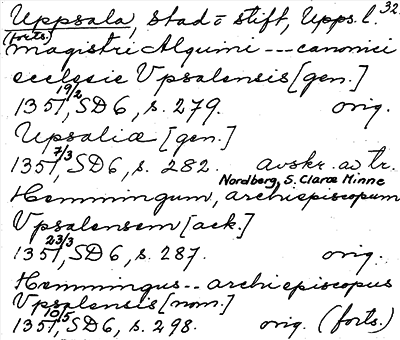 Uppsala, stad o stift, Upps. l. 32.
(forts.)
magistri Alquini --- canonici
ecclesie Vpsalensis [gen.]
1351 19/2, SD 6, s. 279. orig.
Upsaliæ [gen.]
1351 7/3, SD 6, s. 282. avskr. av tr.
Nordberg, S. Claræ Minne
Hemmingum, archiepiscopum
Vpsalensem [ack.]
1351 23/3, SD 6, s. 287. orig.
Hemmingus -- archiepiscopus
Vpsalensis [nom.]
1351 10/5, SD 6, s. 298. orig. (forts.)